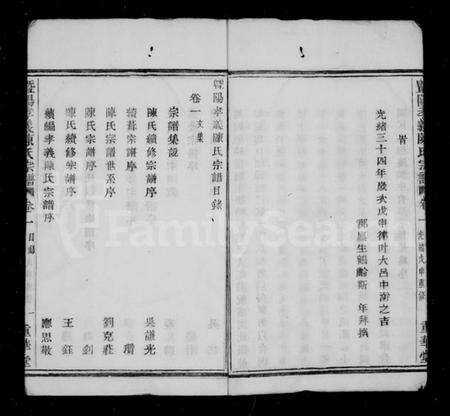 暨陽孝義陳氏宗譜 卷一
重華堂
首
光緒三十四年歲次戊申律叶大呂中澣之吉
郡庠生鶴齡斯 年拜撰
暨陽孝義陳氏宗譜目錄
卷一 文集
宗譜集說
陳氏續修宗譜序 吳謙光
續葺宗譜序
陳氏宗譜世系序 劉克莊
陳氏宗譜序 釗
陳氏續修宗譜序 王鈺
續編孝義陳氏宗譜序 應思敬
暨陽孝義陳氏宗譜 卷一 目錄 一 重華堂
FamilySearch